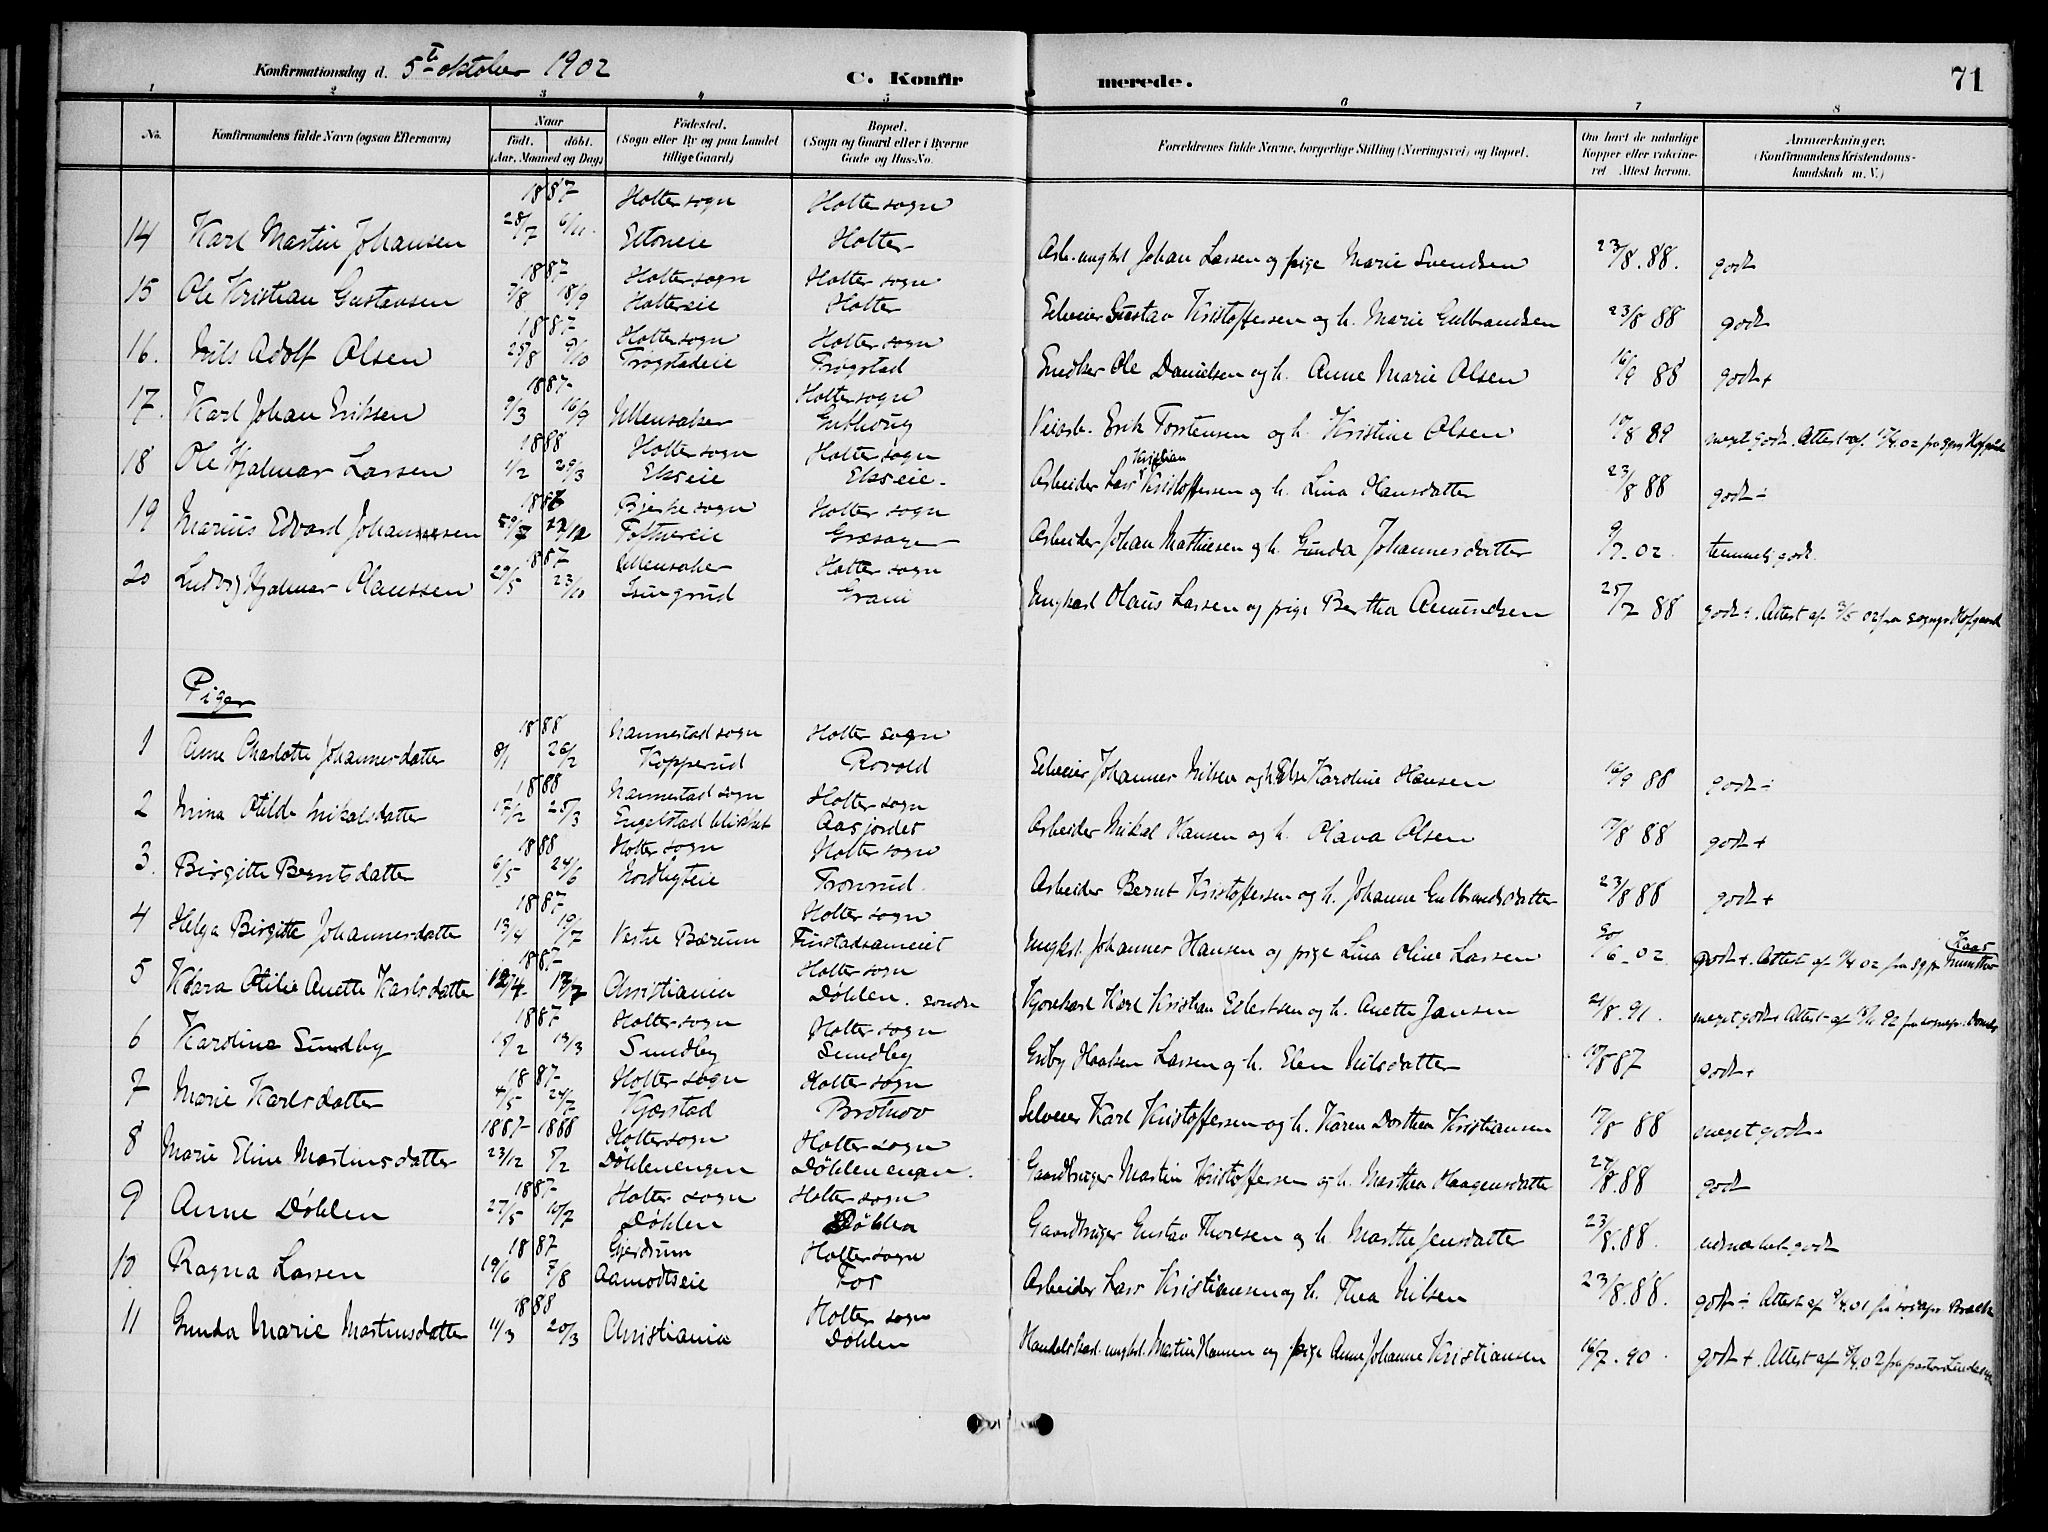 Konfirmationsdag d. 5te oktober 1902 C. Konfirmerede. 71
1 2 3 4 5 6 7 8
No. Konfirmandens fulde Navn (ogsaa Efternavn) Naar født. døbt. (Aar, Maaned og Dag) Fødested. (Sogn eller By og paa Landet tillige Gaard) Bopæl. (Sogn og Gaard eller i Byerne Gade og Hus-No. Forældrenes fulde Navne, borgerlige Stilling (Næringsvei) og Bopæl. Om havt de naturlige Kopper eller vakcineret Attest herom. Anmærkninger. (Konfirmandens Kristendomskundskab m. V.)
1887 Holter sogn Holter sogn
14 Karl Martin Johansen 28/7 6/11. Eltoneie Holter Arb. ungkl Johan Larsen og pige Marie Svendsen 23/8. 88. godt
1887 Holter sogn Holter sogn
15 Ole Kristian Gustavsen 7/8 18/9 Holtereie Holter Selveier Gustav Kristoffersen og h. Marie Gulbrandsen 23/8 88 godt
1887 Holter sogn Holter sogn
16. Nils Adolf Olsen 25/8 9/10 Trøgstadeie Trøgstad Snedker Ole Danielsen og h. Anne Marie Olsen 16/9 88 godt+
1887 Holter sogn
17. Karl Johan Eriksen 9/3 16/9 Ullensaker Veiarb. Erik Torstensen og h. Kristine Olsen 10/8 89 meget godt. Attest af 17/4 02 fra
1888 Holter sogn Holter sogn
18 Ole Hjalmar Larsen 1/2 29/3 Ekseie Ekseie. Arbeider Lars Kristian Kristoffersen og h. Lina Hansdatter 23/8 88 godt ÷
Bjerke sogn Holter sogn
19 Marius Edvard Johansen Arbeider Johan Mathiesen og h. Gunda Johannesdatter 9/7. 02. temmelig godt.
1887 Ullensaker Holter sogn
20 Ludvig Hjalmar Olaussen 29/5 23/10 Isingrud Grani Ungkarl Olaus Larsen og pige Bertha Amundsen 25/7 88 godt ÷. Attest af 3/5 02 fra sognepr Hofgaard
Piger
1888 Nannestad sogn Holter sogn
1 Anne Charlotte Johannesdatter 8/1 26/2 Kopperud Rovold Selveier Johannes Nilsen og h. Else Karoline Hansen 16/9 88 godt ÷
1888 Nannestad sogn Holter sogn
2 Mina Otilde Nikolsdatter 17/2 25/3 Engelstad Aasjordet Arbeider Nikal Hansen og h. Olava Olsen 17/8 88 godt +
1888 Holter sogn Holter sogn
3. Birgitte Berntsdatter 6/5 24/6 Nordbyeie Tronrud. Arbeider Bernt Kristoffersen og h. Johanne Gulbrandsdatter 23/8 88 godt +
1887 Holter sogn
4 Helga Birgitte Johannesdatter 13/4 19/7 Vestre Bærum Finstadsameiet Ungkl. Johannes Hansen og pige Lina Oline Larsen 30/6. 02 godt +. Attest af 02 fra sgpr
1887 Holter sogn
5 Klara Otilie Anette Karlsdatter Christiania Døhlen. søndre Kjørekarl Karl Kristian og h. Anette Jansen 21/8. 91. meget godt Attest af 92 fra sognepr.
1887 Holter sogn Holter sogn
6 Karoline Sundby 15/2 13/3 Sundby Sundby Gdby Haaken Larsen og h. Elen Nilsdatter 87 godt +
1887 Holter sogn Holter sogn
7 Marie Karlsdatter 4/5 24/7 Kjærstad Brotnov Selveier Karl Kristoffersen og h. Karen Dorthea Kristiansen 17/8 88 meget godt.
1887 1888 Holter sogn Holter sogn
8 Marie Eline Martinsdatter 23/12 5/2 Døhlenengen Døhlenengen. Gaardbruger Martin Kristoffersen og h. Marthea Haagensdatter 27/8. 88 godt
1887 Holter sogn Holter sogn
9 Anne Døhlen 27/5 10/7 Døhlen Døhlen Gaardbruger Gustav Thoresen og h. Marthe Jensdatter 23/8. 88. udmærket godt
1887 Gjerdrum Holter sogn
10. Ragna Larsen 19/6 7/8 Aamodtseie Fos Arbeider Lars Kristiansen og h. Thea Nilsen 23/8. 88. godt ÷ Attest af 01 fra sognepr
1888 Holter sogn
11 Gunda Marie Martinsdatter 11/3 20/3 Christiania Døhlen Handelskarl. ungkl. Martin Hansen og pige Anne Johanne Kristiansen 16/7. 90. godt +. Attest af 02 fra pastor Lindemann